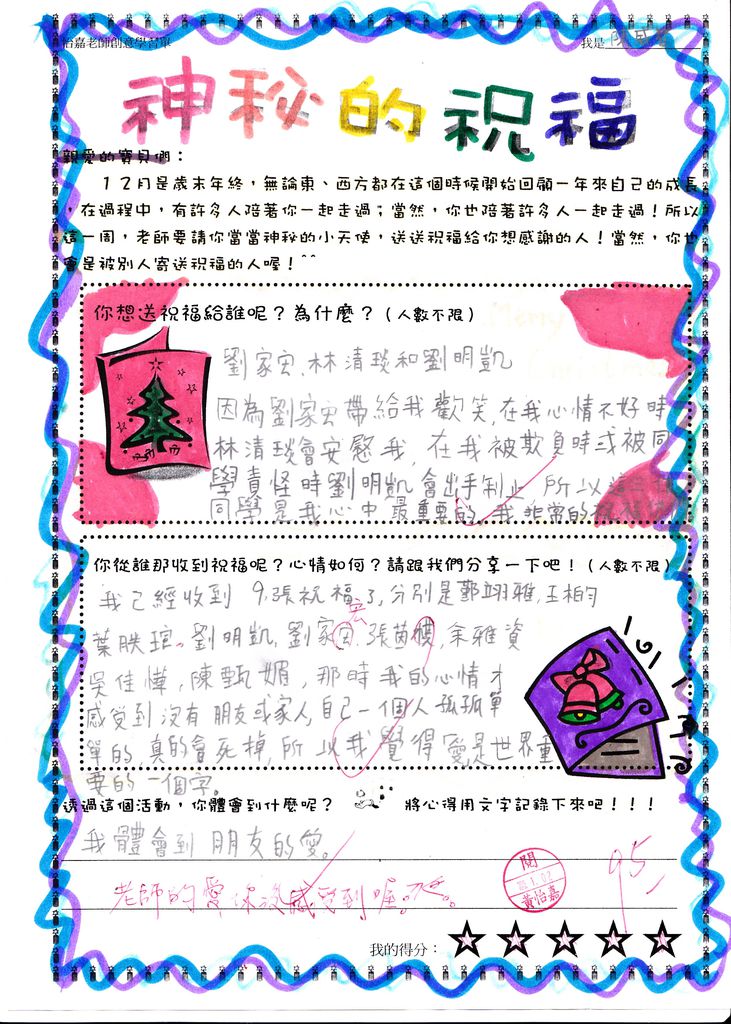 怡嘉老師創意學習單
我是 陳
神秘的祝福
親愛的寶貝們：
１２月是歲末年終，無論東、西方都在這個時候開始回顧一年來自己的成長
，在過程中，有許多人陪著你一起走過；當然，你也陪著許多人一起走過！所以
這一周，老師要請你當當神秘的小天使，送送祝福給你想感謝的人！當然，你也
會是被別人寄送祝福的人喔！^^
你想送祝福給誰呢？為什麼？（人數不限）
劉家宏、林清琰和劉明凱
因為劉家宏帶給我歡笑，在我心情不好時
林清琰會安慰我，在我被欺負時或被同
學責怪時劉明凱會出手制止，所以這三
同學是我心中最重要的，我非常的祝福
你從誰那收到祝福呢？心情如何？請跟我們分享一下吧！（人數不限）
我已經收到9張祝福了，分別是鄞翊雅，王柏勻
葉肤琯。劉明凱，劉家宏，張茵樸，余雅資
吳佳樺，陳甄媚，那時我的心情才
感受到沒有朋友或家人，自己一個人孤孤單
單的，真的會死掉，所以我覺得愛是世界重
要的一個字。
透過這個活動，你體會到什麼呢？ 將心得用文字記錄下來吧！！！
我體會到朋友的愛。
老師的愛你沒感受到喔。
閱
黃怡嘉
95
我的得分：